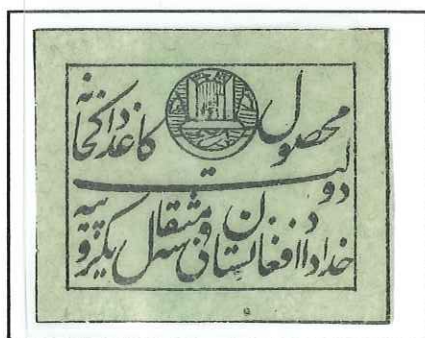 محصول کاغذ داکخانه
دولت
خداداد افغانستان مثقال یکروپیه